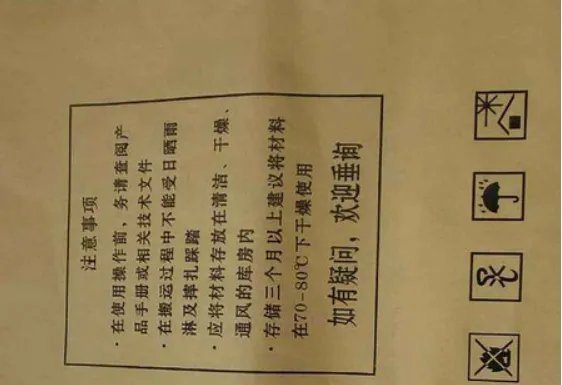 注意事项
· 在使用操作前，务请查阅产
品手册或相关技术文件
· 在搬运过程中不能受日晒雨
淋及摔扎踩踏
· 应将材料存放在清洁、干燥、
通风的库房内
· 存储三个月以上建议将材料
在70-80℃下干燥使用
如有疑问，欢迎垂询